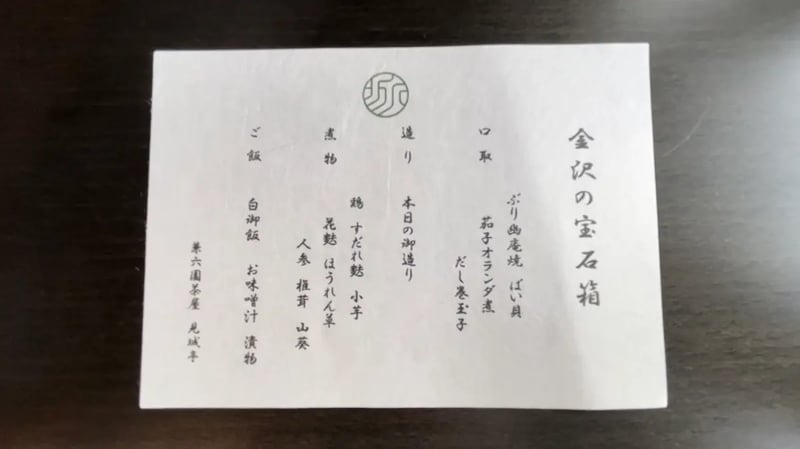 金沢の宝石箱
口取 ぶり幽庵焼 ばい貝
茄子オランダ煮
だし巻玉子
造り 本日の御造り
煮物 鴨 すだれ麩 小芋
花麩 ほうれん草
人参 椎茸 山葵
ご飯 白御飯 お味噌汁 漬物
兼六園茶屋 見城亭